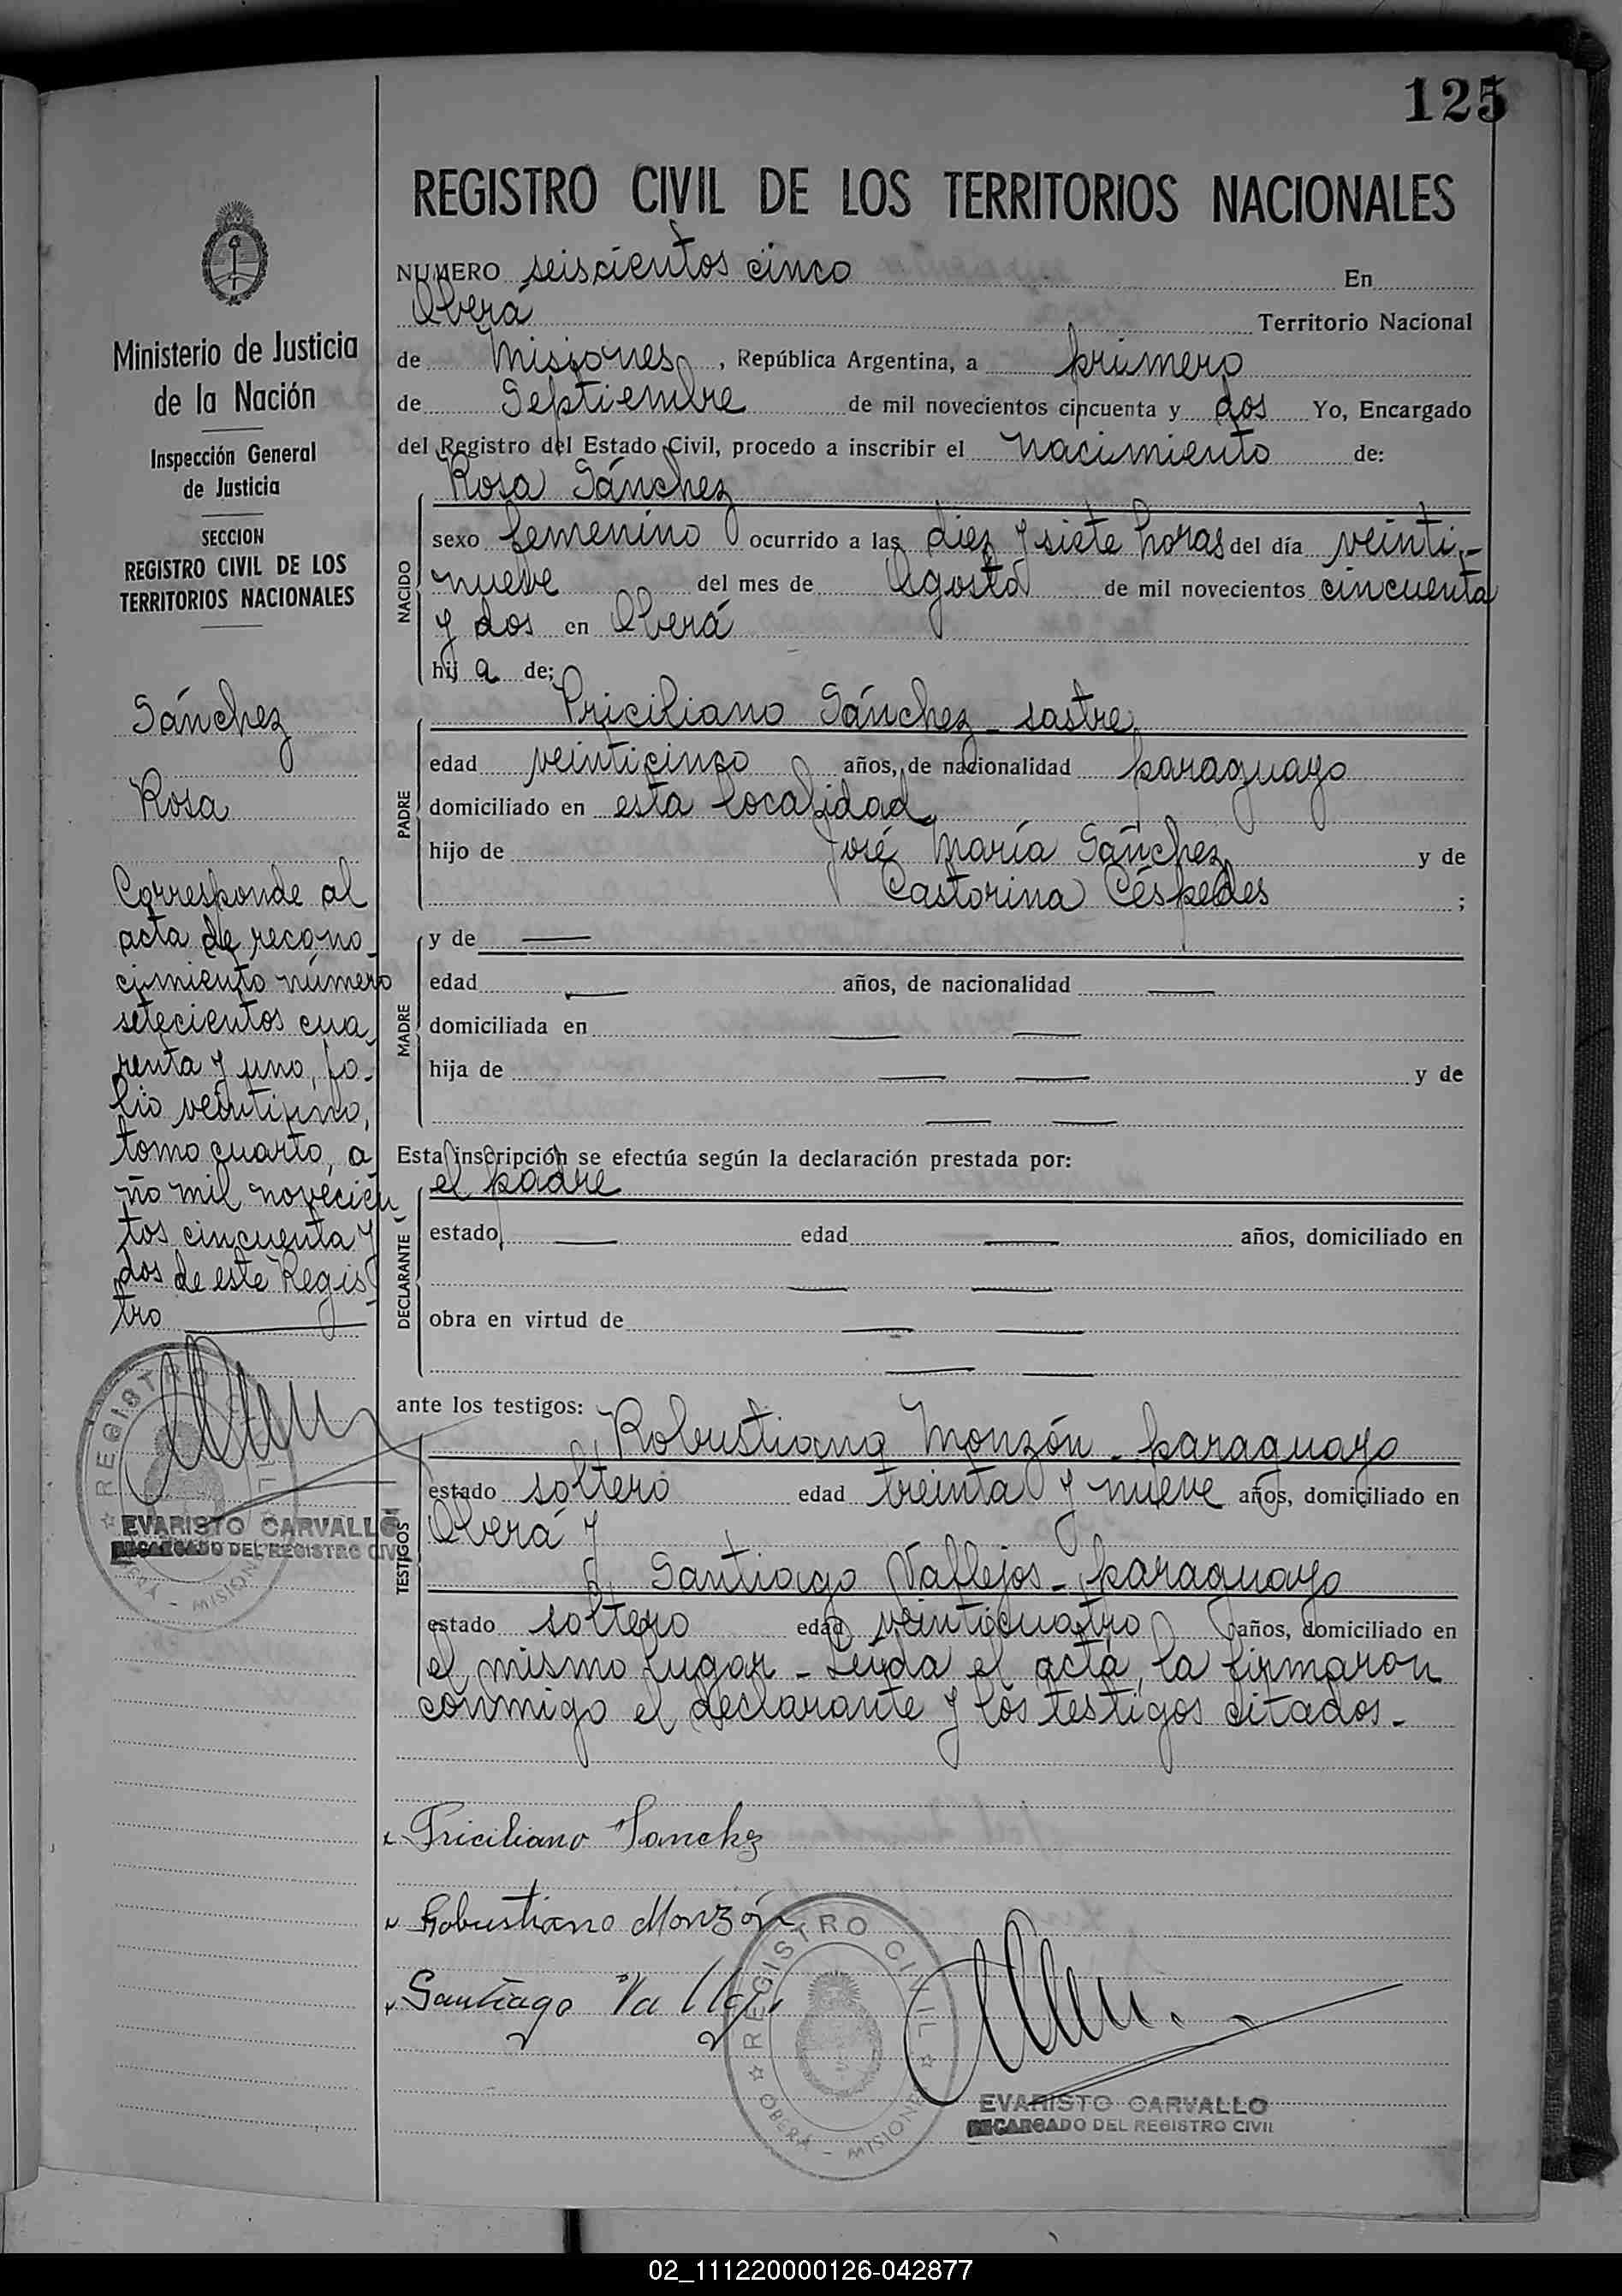 125
REGISTRO CIVIL DE LOS TERRITORIOS NACIONALES
NUMERO seiscientos cinco En
Oberá Territorio Nacional
de Misiones, República Argentina, a primero
de Septiembre de mil novecientos cincuenta y dos Yo, Encargado
del Registro del Estado Civil, procedo a inscribir el nacimiento de:
Rosa Sánchez
NACIDO
sexo femenino ocurrido a las diez y siete horas del día veinti-
nueve del mes de Agosto de mil novecientos cincuenta
y dos en Oberá
hij a de;
Priciliano Sánchez - sastre,
PADRE
edad veinticinco años, de nacionalidad paraguayo
domiciliado en esta localidad,
hijo de José María Sánchez y de
Castorina Céspedes ;
MADRE
y de —
edad — años, de nacionalidad —
domiciliada en — —
hija de — — y de
— —
Esta inscripción se efectúa según la declaración prestada por:
el padre
DECLARANTE
estado — edad — años, domiciliado en
— —
obra en virtud de — —
— —
ante los testigos:
Robustiano Monzón - paraguayo
TESTIGOS
estado soltero edad treinta y nueve años, domiciliado en
Oberá y
Santiago Vallejos - paraguayo
estado soltero edad veinticuatro años, domiciliado en
el mismo lugar - Leída el acta, la firmaron
conmigo el declarante y los testigos citados.-
Priciliano Sanchez
Robustiano Monzón
Santiago Vallejo
REGISTRO CIVIL
OBERÁ - MISIONES
EVARISTO CARVALLO
ENCARGADO DEL REGISTRO CIVIL
Ministerio de Justicia
de la Nación
Inspección General
de Justicia
SECCION
REGISTRO CIVIL DE LOS
TERRITORIOS NACIONALES
Sánchez
Rosa
Corresponde al
acta de recono-
cimiento número
setecientos cua-
renta y uno, fo-
lio veintiuno,
tomo cuarto, a-
ño mil novecien-
tos cincuenta y
dos de este Regis-
tro
REGISTRO CIVIL
OBERÁ - MISIONES
EVARISTO CARVALLO
ENCARGADO DEL REGISTRO CIVIL
02_111220000126-042877